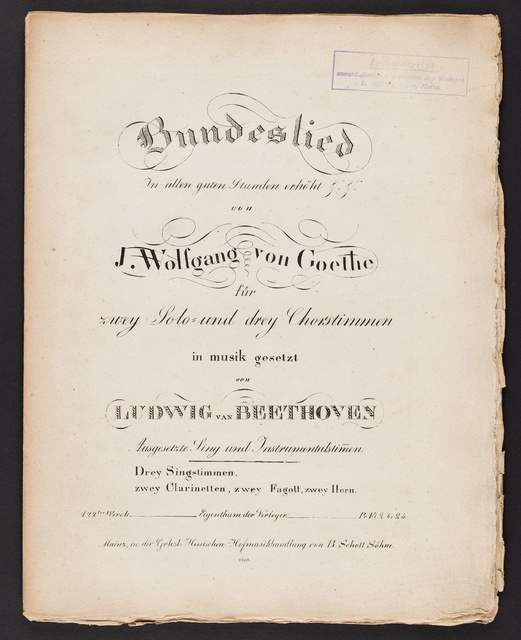 unrechtmässig
der Verlages
Bundeslied
In allen guten Stunden erhöht
von
J. Wolfgang von Goethe
für
zwey Solo- und drey Chorstimmen
in musik gesetzt
von
LUDWIG VAN BEETHOVEN
Ausgesetzte Sing und Instrumentalstim̅en.
Drey Singstimmen.
zwey Clarinetten, zwey Fagott, zwey Horn.
122tes Werk. Eigenthum der Verleger.
Mainz, in der Grhzl. Hessischen Hofmusikhandlung von B. Schott Söhne